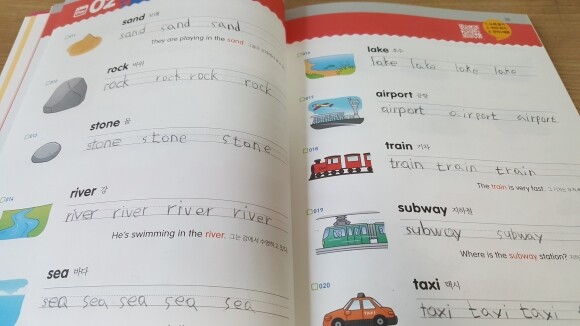 02
sand 모래
sand sand sand
They are playing in the sand.
rock 바위
rock rock rock rock
013
stone 돌
stone stone stone
014
river 강
river river river river
He's swimming in the river. 그는 강에서 수영하고 있다.
sea 바다
sea sea sea sea sea
lake 호수
lake lake lake lake
017
airport 공항
airport airport airport
018
train 기차
train train train
The train is very fast.
019
subway 지하철
subway subway
Where is the subway station?
020
taxi 택시
TAXI
taxi taxi taxi